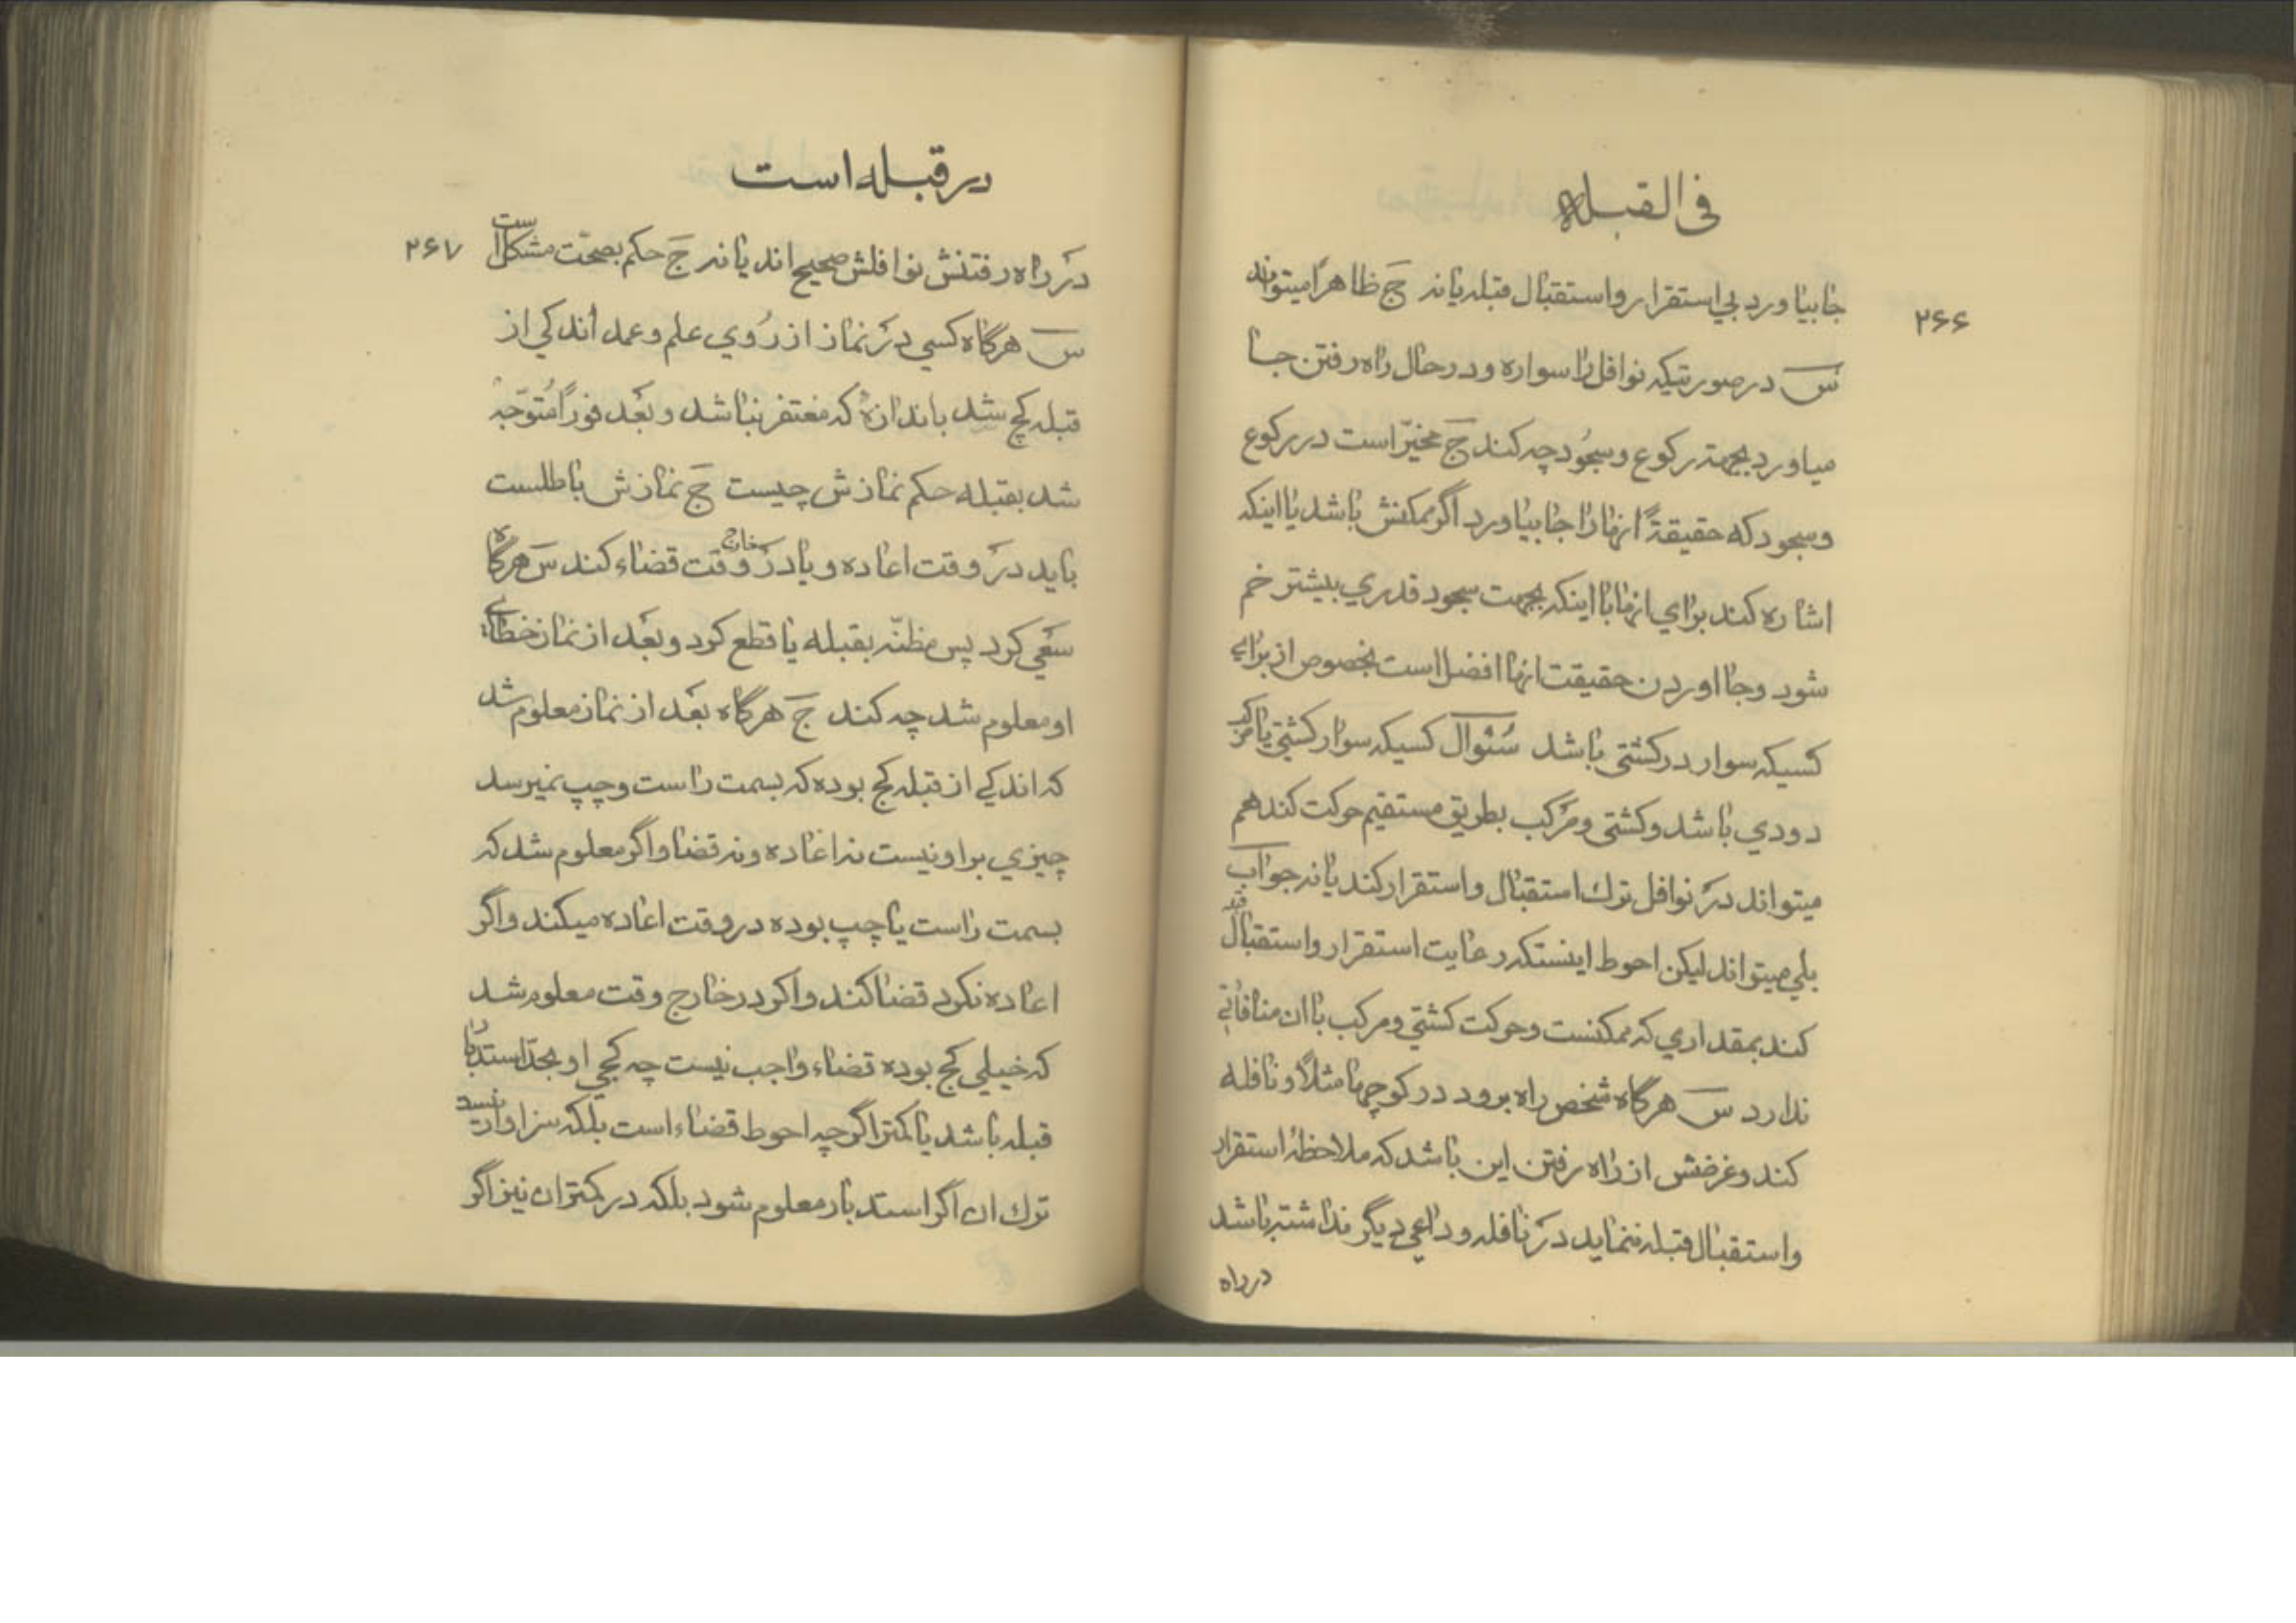 فی القبلة
۲۶۶
جا بیاورد بی استقرار و استقبال قبله یا نه جَ ظاهراً میتواند
سَ در صورتیکه نوافل را سواره و در حال راه رفتن جا
میاورد بجهتهٔ رکوع و سجُود چه کند جَ مخیّر است در رکوع
و سجود که حقیقةً انها را جا بیاورد اگر ممکنش باشد یا اینکه
اشاره کند برای انها با اینکه بجهت سجود قدری بیشتر خم
شود و جا اوردن حقیقت انها افضل است بخصوص از برای
کسیکه سوار در کشتی باشد سُئوال کسیکه سوار کشتی یا مرکب
دودی باشد و کشتی و مرَکب بطریق مستقیم حرکت کند هم
میتواند درَ نوافل ترك استقبال و استقرار کند یا نه جواب
بلی میتواند لیکن احوط اینستکه رعایت استقرار و استقبال قبله
کند بمقداری که ممکنست و حرکت کشتی و مرکب با ان منافاتی
ندارد سَ هرگاه شخص راه برود در کوچها مثلاً و نافله
کند و غرضش از راه رفتن این باشد که ملاحظهٔ استقرار
و استقبال قبله ننماید درَ نافله و داعی دیگر نداشته باشد
در راه
در قبله است
۲۶۷
درَ راه رفتنش نوافلش صحیح اند یا نه جَ حکم بصحّت مشکل است
سَ هرگاه کسی درَ نماز از رُوی علم و عمد اندکی از
قبله کج شد باندازهٔ که مغتفر نباشد و بعَد فوراً مُتوَجّه
شد بقبله حکم نمازش چیست جَ نمازش باطلست
باید درَ وقت اعاده و یا درَ خارج وقت قضاء کند سَ هرگاه
سعَی کرد پس مظنّه بقبله یا قطع کرد و بعَد از نماز خطای
او معلوم شد چه کند جَ هرگاه بعَد از نماز معلوم شد
که اندکی از قبله کج بوده که بسمت راست و چپ نمیرسد
چیزی بر او نیست نه اعاده و نه قضا و اگر معلوم شد که
بسمت راست یا چپ بوده در وقت اعاده میکند و اگر
اعاده نکرد قضا کند و اگر در خارج وقت معلوم شد
که خیلی کج بوده قضاء واجب نیست چه کجی او بحدّ استدبار
قبله باشد یا کمتر اگرچه احوط قضاء است بلکه سزاوار نیست
ترك ان اگر استدبار معلوم شود بلکه در کمتر ان نیز اگر